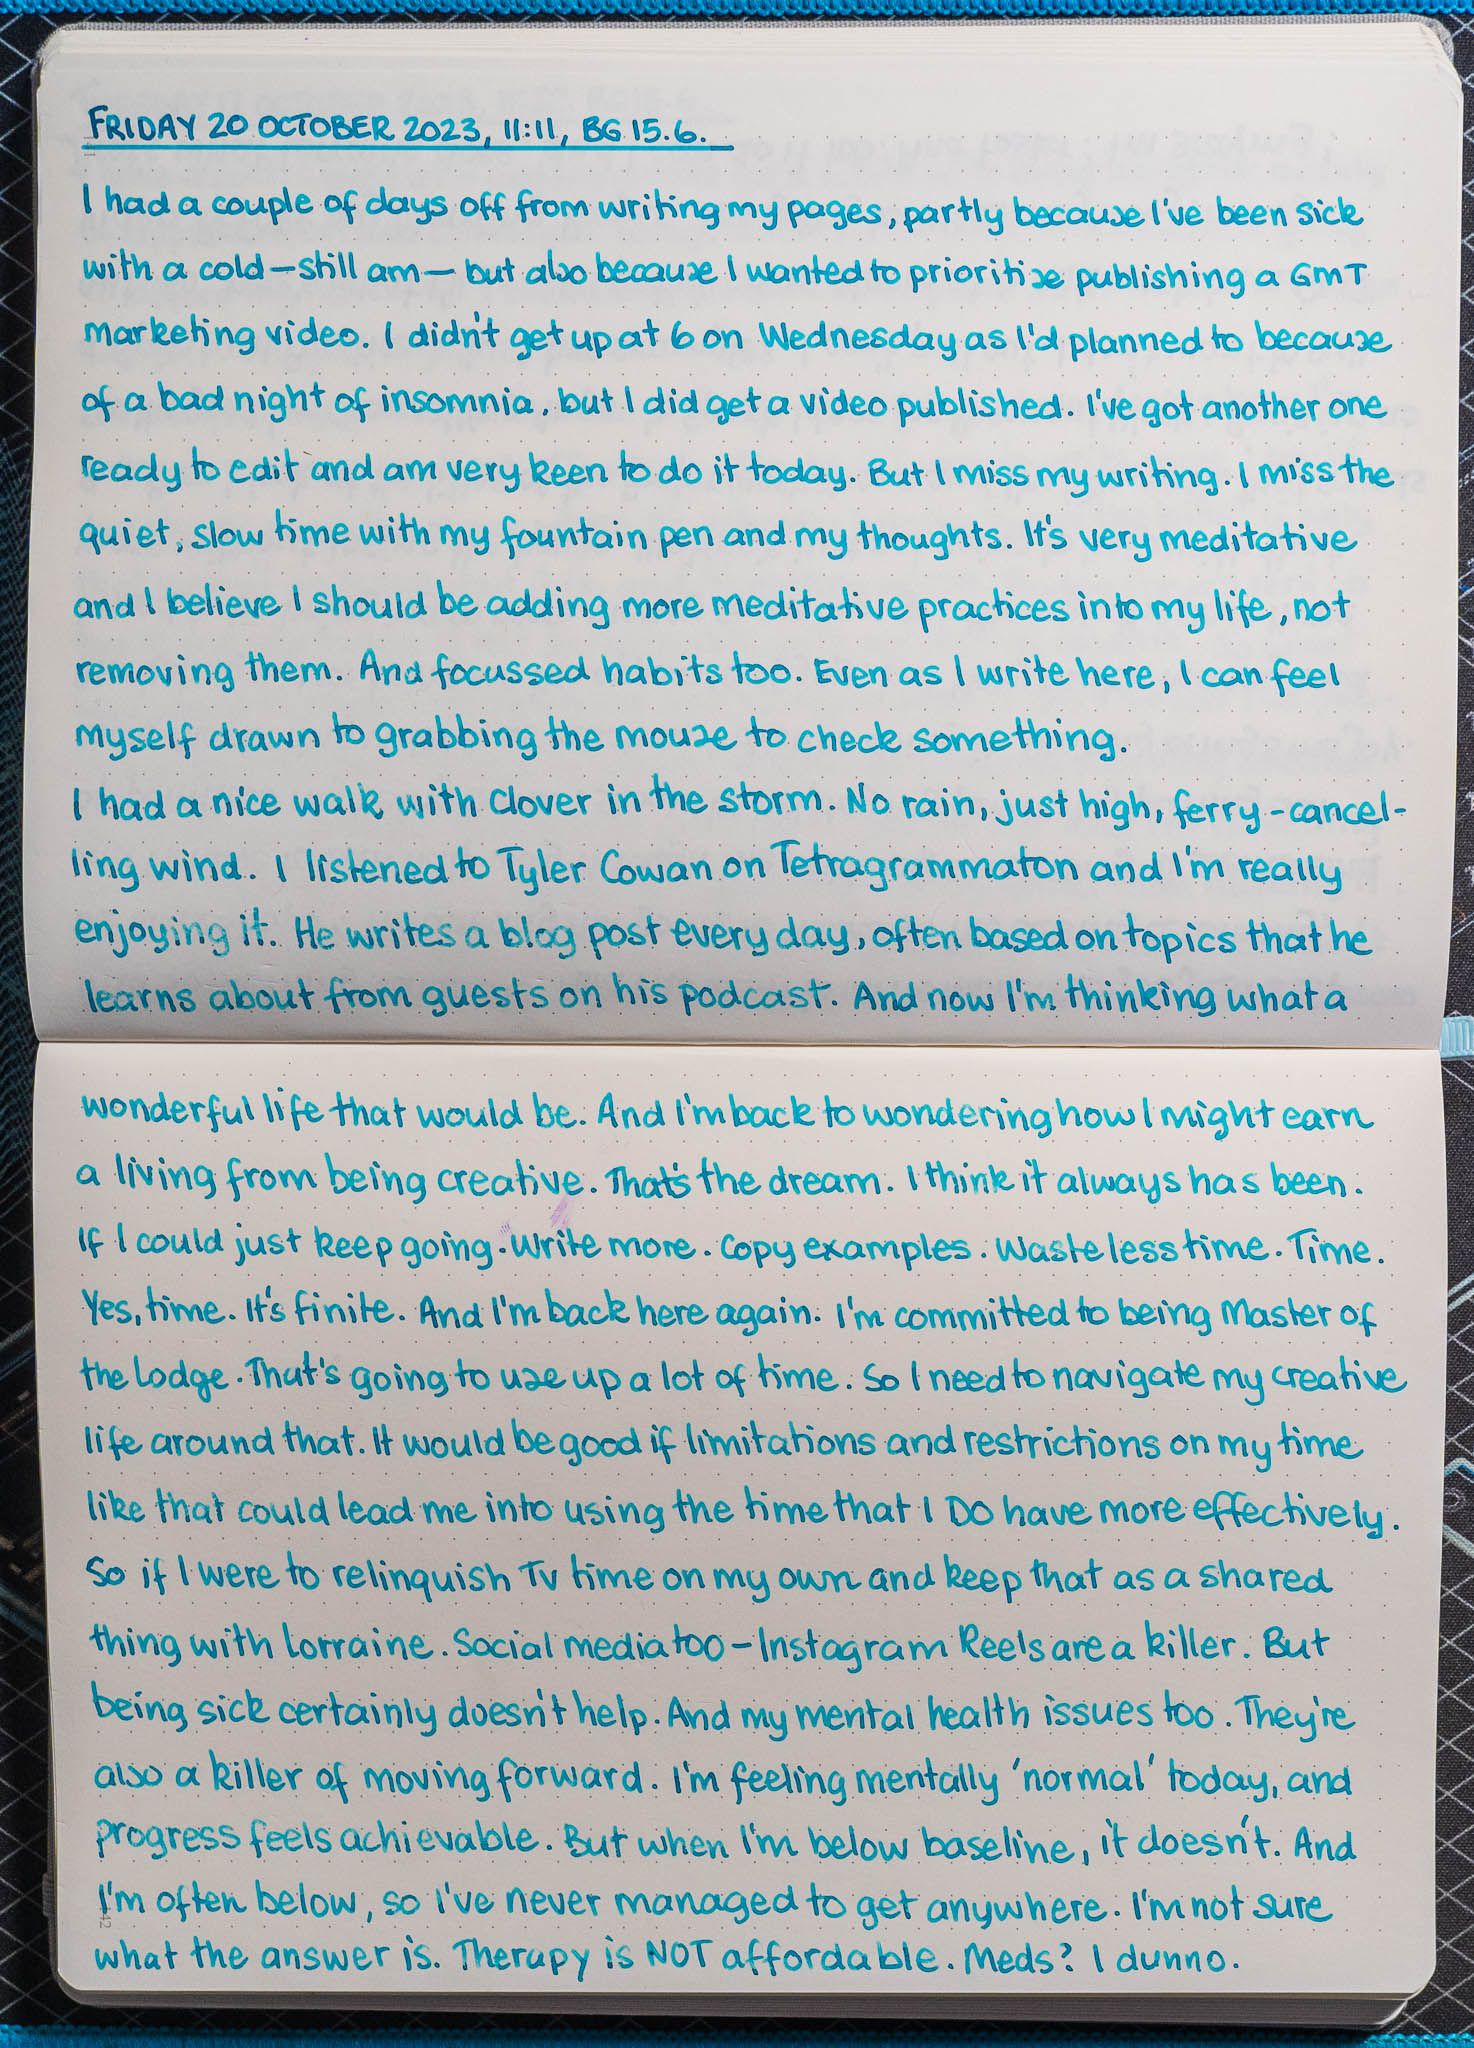 FRIDAY 20 OCTOBER 2023, 11:11, BG 15.6.
I had a couple of days off from writing my pages, partly because I've been sick
with a cold—still am—but also because I wanted to prioritise publishing a GMT
marketing video. I didn't get up at 6 on Wednesday as I'd planned to because
of a bad night of insomnia, but I did get a video published. I've got another one
ready to edit and am very keen to do it today. But I miss my writing. I miss the
quiet, slow time with my fountain pen and my thoughts. It's very meditative
and I believe I should be adding more meditative practices into my life, not
removing them. And focussed habits too. Even as I write here, I can feel
myself drawn to grabbing the mouse to check something.
I had a nice walk with Clover in the storm. No rain, just high, ferry-cancel-
ling wind. I listened to Tyler Cowan on Tetragrammaton and I'm really
enjoying it. He writes a blog post every day, often based on topics that he
learns about from guests on his podcast. And now I'm thinking what a
wonderful life that would be. And I'm back to wondering how I might earn
a living from being creative. That's the dream. I think it always has been.
If I could just keep going. Write more. Copy examples. Waste less time. Time.
Yes, time. It's finite. And I'm back here again. I'm committed to being Master of
the Lodge. That's going to use up a lot of time. So I need to navigate my creative
life around that. It would be good if limitations and restrictions on my time
like that could lead me into using the time that I DO have more effectively.
So if I were to relinquish TV time on my own and keep that as a shared
thing with Lorraine. Social media too—Instagram Reels are a killer. But
being sick certainly doesn't help. And my mental health issues too. They're
also a killer of moving forward. I'm feeling mentally 'normal' today, and
progress feels achievable. But when I'm below baseline, it doesn't. And
I'm often below, so I've never managed to get anywhere. I'm not sure
what the answer is. Therapy is NOT affordable. Meds? I dunno.